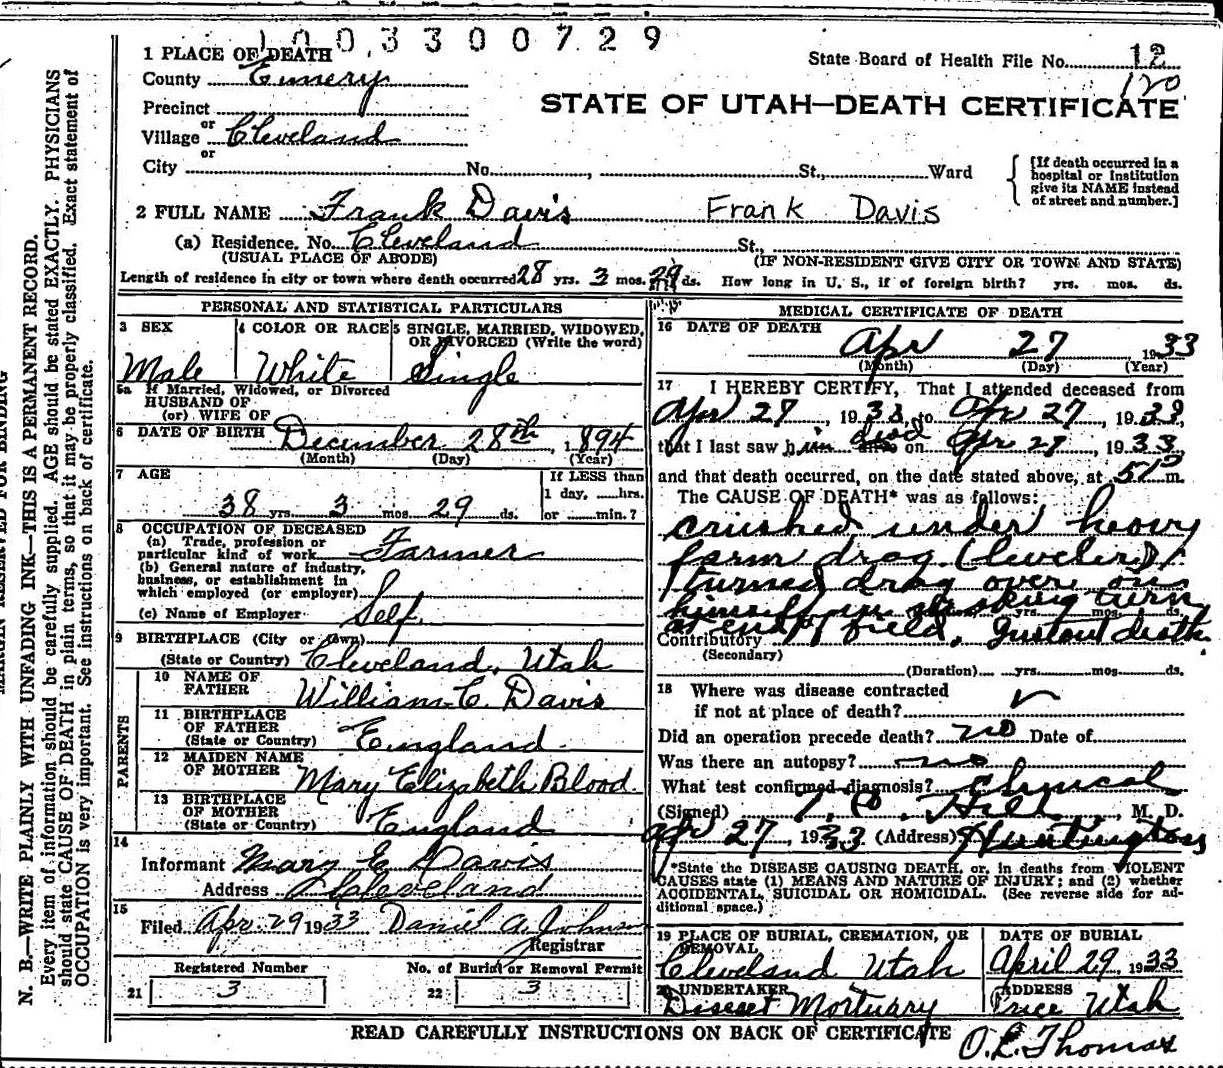 1003300729
1 PLACE OF DEATH
State Board of Health File No. 12
120
County Emery
STATE OF UTAH—DEATH CERTIFICATE
Precinct
or
Village Cleveland
or
City No. , St., Ward
[If death occurred in a hospital or Institution give its NAME instead of street and number.]
2 FULL NAME Frank Davis Frank Davis
(a) Residence, No. Cleveland St.,
(USUAL PLACE OF ABODE) (IF NON-RESIDENT GIVE CITY OR TOWN AND STATE)
Length of residence in city or town where death occurred 28 yrs. 3 mos. 29 ds. How long in U. S., if of foreign birth? yrs. mos. ds.
PERSONAL AND STATISTICAL PARTICULARS
3 SEX 4 COLOR OR RACE 5 SINGLE, MARRIED, WIDOWED, OR DIVORCED (Write the word)
Male White Single
5a If Married, Widowed, or Divorced
HUSBAND OF
(or) WIFE OF
6 DATE OF BIRTH December 28th, 1894
(Month) (Day) (Year)
7 AGE If LESS than
1 day, hrs.
38 yrs. 3 mos. 29 ds. or min.?
8 OCCUPATION OF DECEASED
(a) Trade, profession or
particular kind of work Farmer
(b) General nature of industry,
business, or establishment in
which employed (or employer)
(c) Name of Employer Self
9 BIRTHPLACE (City or Town)
(State or Country) Cleveland, Utah
PARENTS
10 NAME OF
FATHER William C. Davis
11 BIRTHPLACE
OF FATHER
(State or Country) England
12 MAIDEN NAME
OF MOTHER Mary Elizabeth Blood
13 BIRTHPLACE
OF MOTHER
(State or Country) England
14
Informant Mary E Davis
Address Cleveland
15
Filed Apr 29 1933 Daniel A. Johnson
Registrar
Registered Number No. of Burial or Removal Permit
21 3 22 3
MEDICAL CERTIFICATE OF DEATH
16 DATE OF DEATH
Apr 27 1933
(Month) (Day) (Year)
17 I HEREBY CERTIFY, That I attended deceased from
Apr 27, 1933, to Apr 27, 1933,
that I last saw him alive dead on Apr 27, 1933,
and that death occurred, on the date stated above, at 5 P m.
The CAUSE OF DEATH* was as follows:
crushed under heavy
farm drag (leveler)
turned drag over on
himself in making turn
yrs. mos. ds.
at end of field, Instant death
Contributory
(Secondary)
(Duration) yrs. mos. ds.
18 Where was disease contracted
if not at place of death?
Did an operation precede death? no Date of
Was there an autopsy? no
What test confirmed diagnosis? Clinical
(Signed) Hill, M. D.
Apr 27, 1933 (Address) Huntington
*State the DISEASE CAUSING DEATH, or, in deaths from VIOLENT
CAUSES state (1) MEANS AND NATURE OF INJURY; and (2) whether
ACCIDENTAL, SUICIDAL OR HOMICIDAL. (See reverse side for ad-
ditional space.)
19 PLACE OF BURIAL, CREMATION, OR REMOVAL DATE OF BURIAL
Cleveland Utah April 29, 1933
20 UNDERTAKER ADDRESS
Mortuary Price Utah
READ CAREFULLY INSTRUCTIONS ON BACK OF CERTIFICATE
O. L. Thomas
MARGIN RESERVED FOR BINDING
N. B.—WRITE PLAINLY WITH UNFADING INK—THIS IS A PERMANENT RECORD.
Every item of information should be carefully supplied. AGE should be stated EXACTLY. PHYSICIANS
should state CAUSE OF DEATH in plain terms, so that it may be properly classified. Exact statement of
OCCUPATION is very important. See instructions on back of certificate.